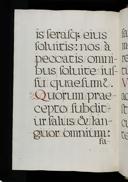 is serasq; eius
soluitis: nos à
peccatis omni
bus soluite ius
su quaesum⁹.
Quorum prae
cepto subdit⁹
ur salus & lan
guor omnium:
sa-